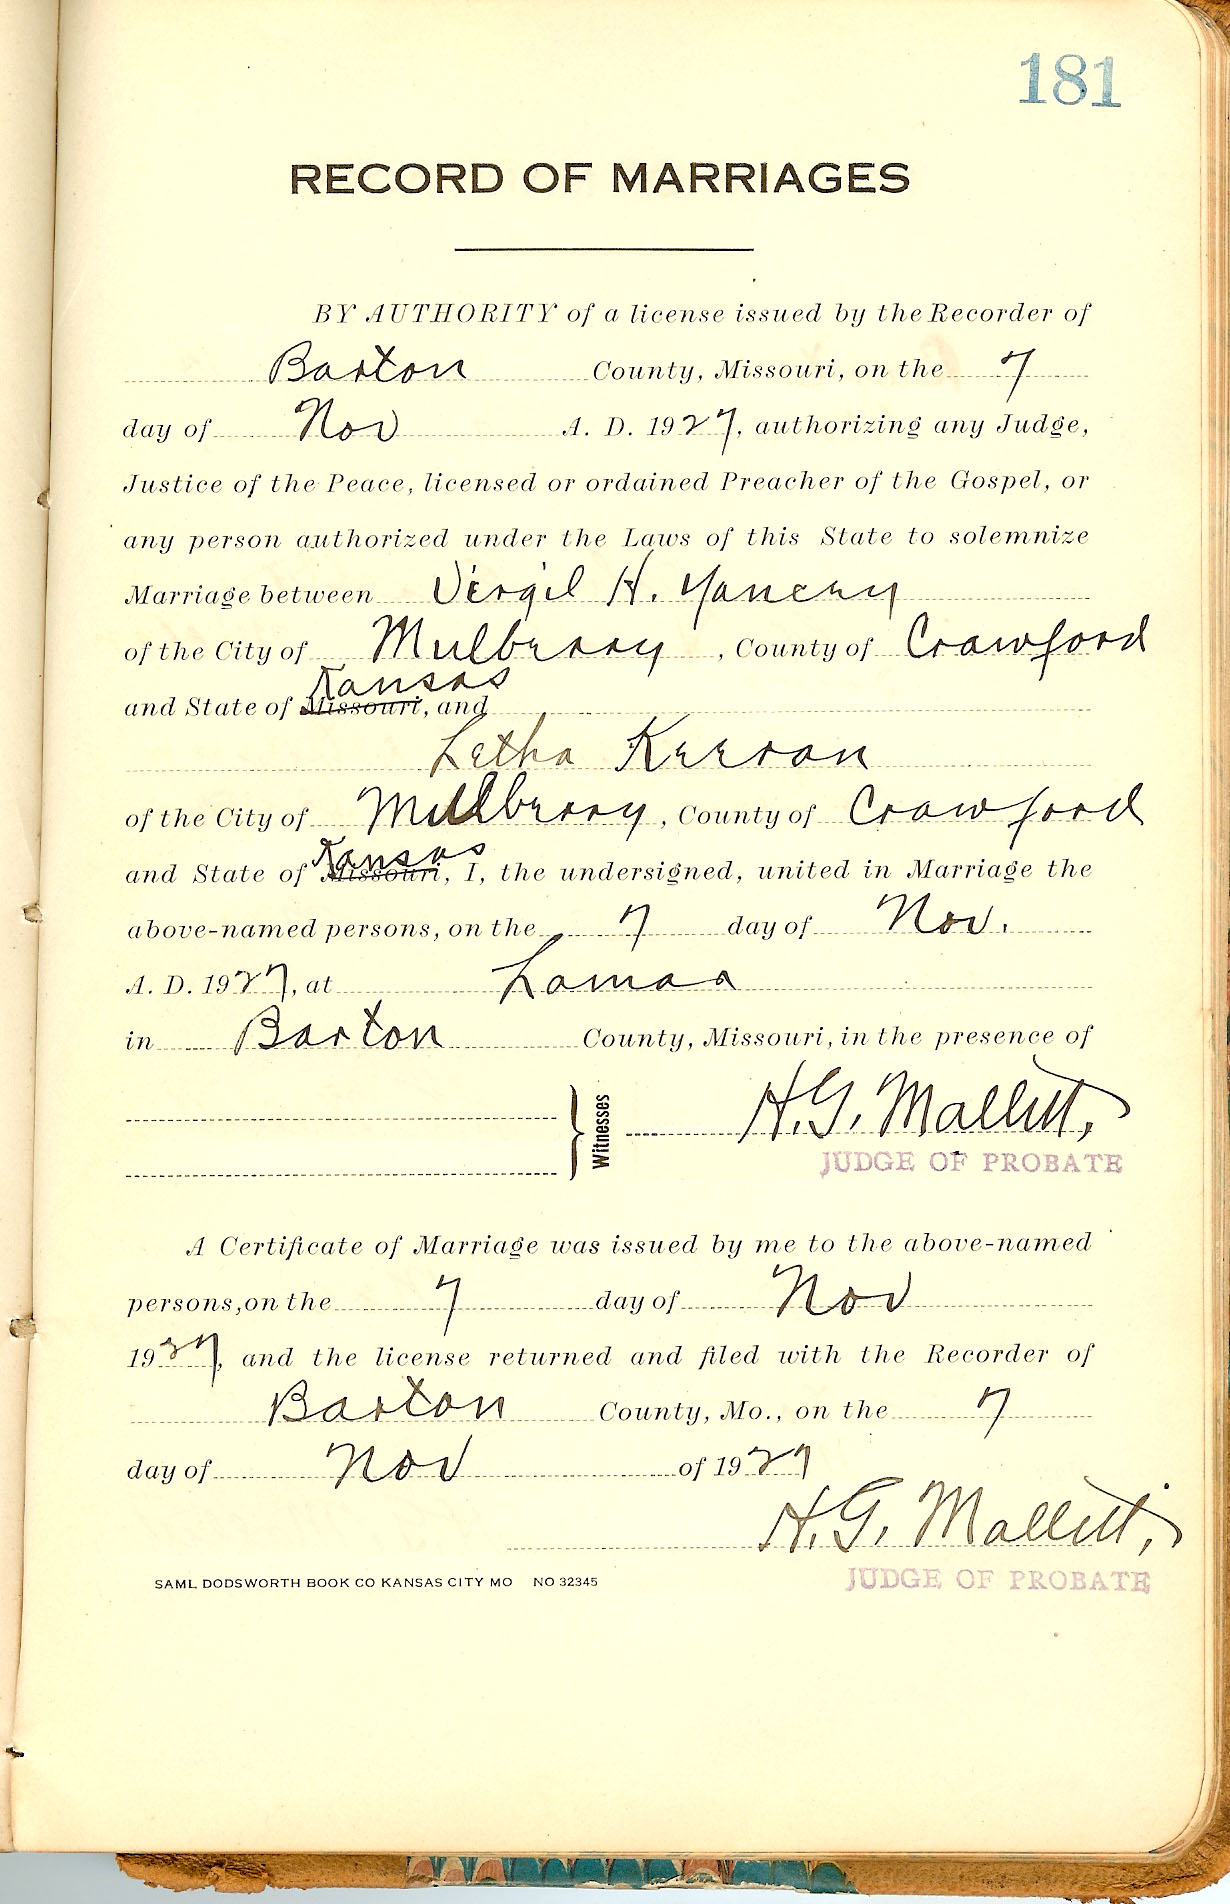 181
RECORD OF MARRIAGES
BY AUTHORITY of a license issued by the Recorder of
Barton County, Missouri, on the 7
day of Nov A. D. 1927, authorizing any Judge,
Justice of the Peace, licensed or ordained Preacher of the Gospel, or
any person authorized under the Laws of this State to solemnize
Marriage between Virgil H. Yancery
of the City of Mulberry, County of Crawford
Kansas
and State of Missouri, and
Letha Keeran
of the City of Mulberry, County of Crawford
Kansas
and State of Missouri, I, the undersigned, united in Marriage the
above-named persons, on the 7 day of Nov.
A. D. 1927, at Lamar
in Barton County, Missouri, in the presence of
Witnesses
H. G. Mallett,
JUDGE OF PROBATE
A Certificate of Marriage was issued by me to the above-named
persons, on the 7 day of Nov
1927, and the license returned and filed with the Recorder of
Barton County, Mo., on the 7
day of Nov of 1927
H. G. Mallett,
JUDGE OF PROBATE
SAML DODSWORTH BOOK CO KANSAS CITY MO NO 32345